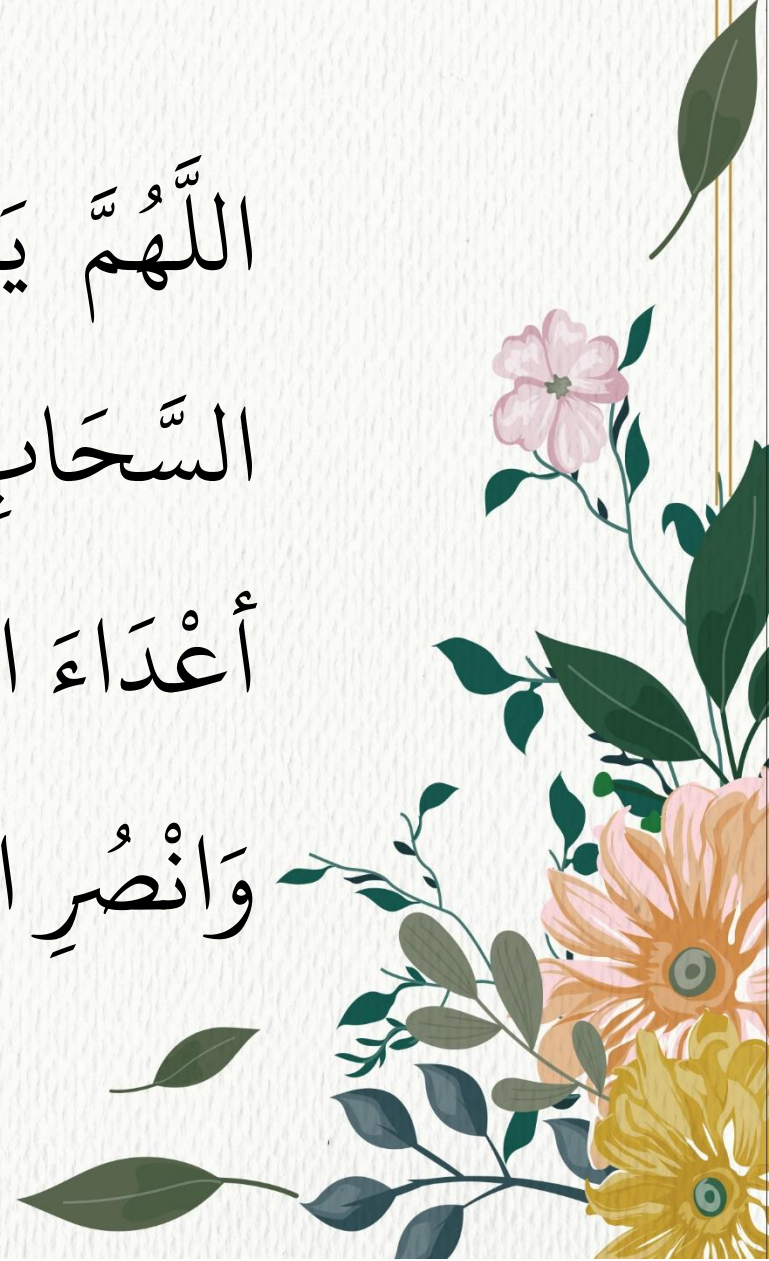 اللَّهُمَّ يَ
السَّحَابِ
أَعْدَاءَ ا
وَانْصُرِ ا